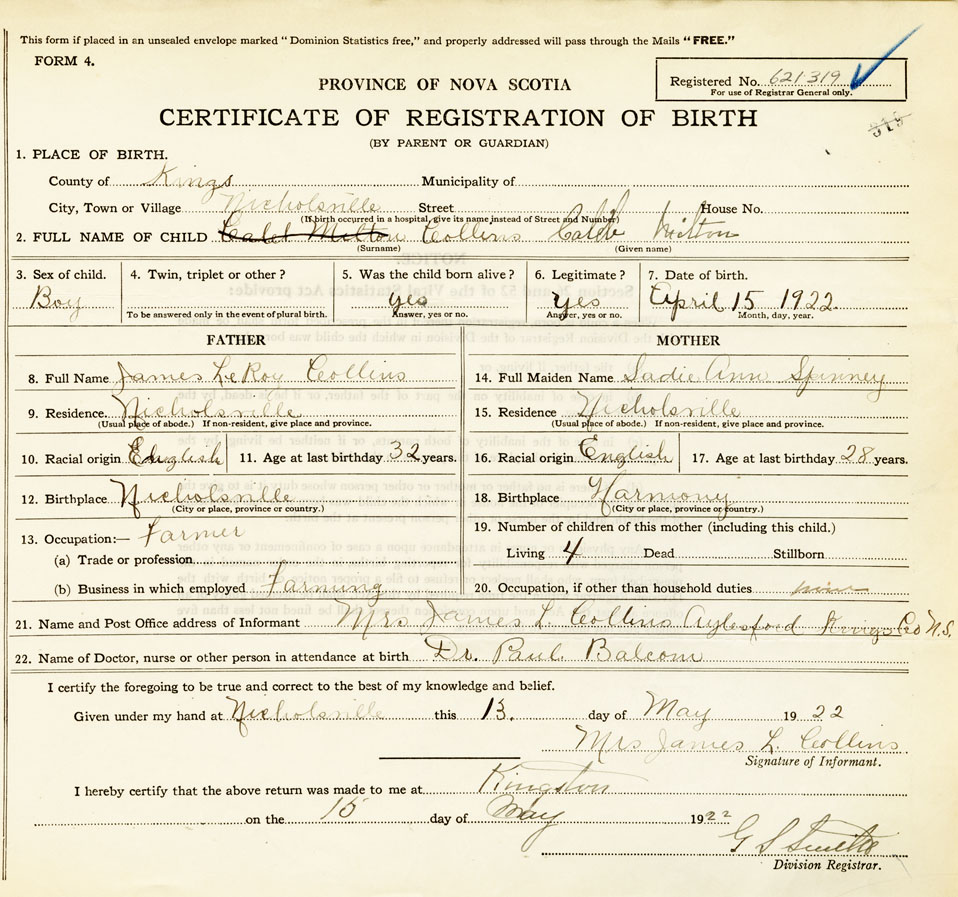 This form if placed in an unsealed envelope marked "Dominion Statistics free," and properly addressed will pass through the Mails "FREE."
FORM 4.
PROVINCE OF NOVA SCOTIA
Registered No. 621319
For use of Registrar General only.
CERTIFICATE OF REGISTRATION OF BIRTH
319
(BY PARENT OR GUARDIAN)
1. PLACE OF BIRTH.
County of Kings Municipality of
City, Town or Village Nicholsville Street House No.
(If birth occurred in a hospital, give its name instead of Street and Number)
2. FULL NAME OF CHILD Calel Milton Collins Caleb Milton
(Surname) (Given name)
3. Sex of child. 4. Twin, triplet or other? 5. Was the child born alive? 6. Legitimate? 7. Date of birth.
Boy yes yes April 15 1922
To be answered only in the event of plural birth. Answer, yes or no. Answer, yes or no. Month, day, year.
FATHER MOTHER
8. Full Name James LeRoy Collins 14. Full Maiden Name Sadie Ann Spinney
9. Residence. Nicholsville 15. Residence Nicholsville
(Usual place of abode.) If non-resident, give place and province. (Usual place of abode.) If non-resident, give place and province.
10. Racial origin English 11. Age at last birthday 32 years. 16. Racial origin English 17. Age at last birthday 28 years.
12. Birthplace Nicholsville 18. Birthplace Harmony
(City or place, province or country.) (City or place, province or country.)
13. Occupation:— Farmer 19. Number of children of this mother (including this child.)
(a) Trade or profession Living 4 Dead Stillborn
(b) Business in which employed Farming 20. Occupation, if other than household duties
21. Name and Post Office address of Informant Mrs James L. Collins Aylesford Kings Co N.S.
22. Name of Doctor, nurse or other person in attendance at birth Dr. Paul Balcom
I certify the foregoing to be true and correct to the best of my knowledge and belief.
Given under my hand at Nicholsville this 13. day of May 1922
Mrs James L. Collins
Signature of Informant.
I hereby certify that the above return was made to me at Kingston
on the 15 day of May 1922
G S Smith
Division Registrar.